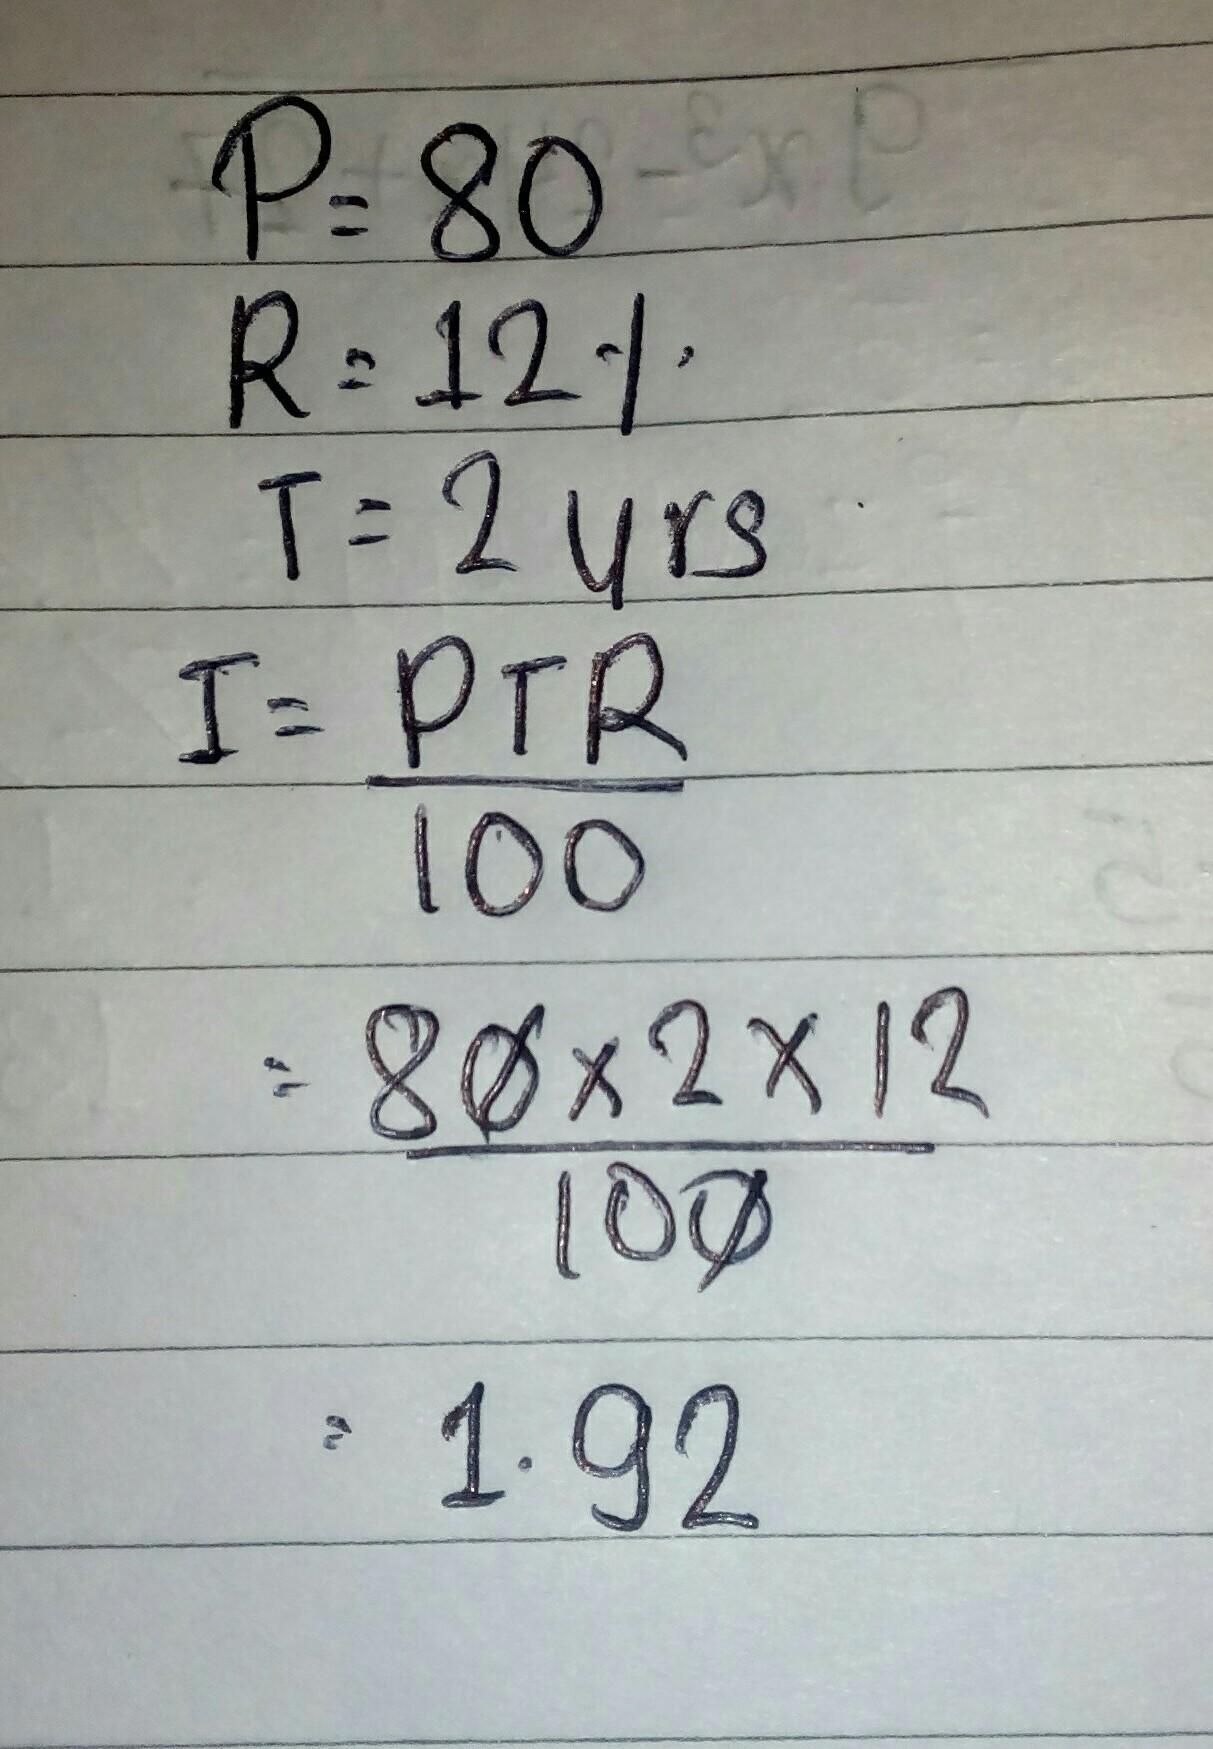 P = 80
R = 12 %
T = 2 yrs
I = PTR
100
= 80 x 2 x 12
100
= 1.92